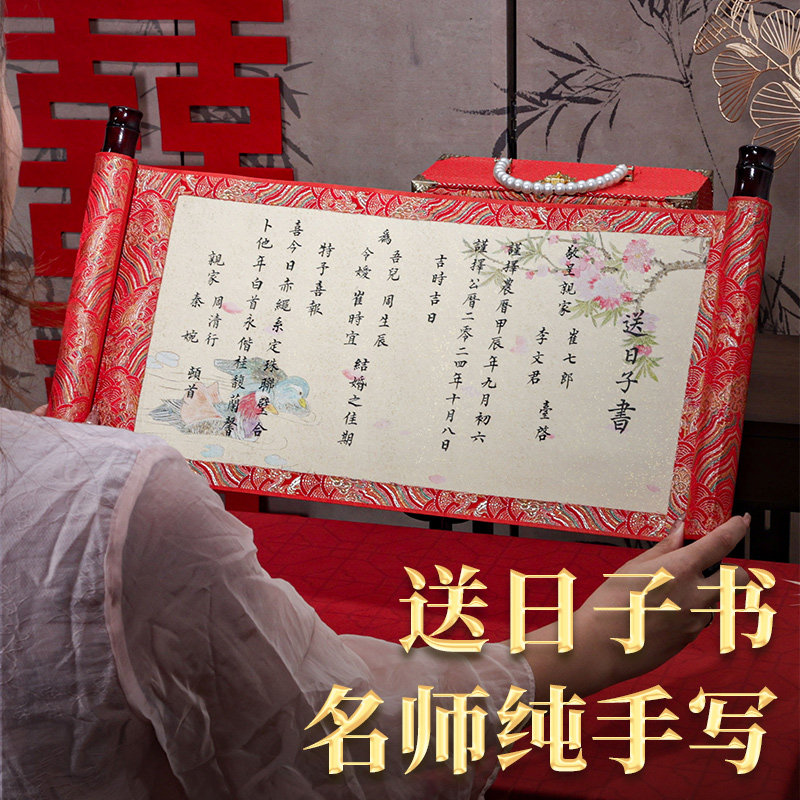 囍
送日子書
敬呈親家 崔七郎
李文君 臺啓
謹擇農曆甲辰年九月初六
謹擇公曆二零二四年十月八日
吉時吉日
為
吾兒 周生辰
令嬡 崔時宜 結婚之佳期
特予喜報
喜今日赤繩系定珠聯璧合
卜他年白首永偕桂馥蘭馨
親家 周清行
秦婉 頓首
送日子书
名师纯手写